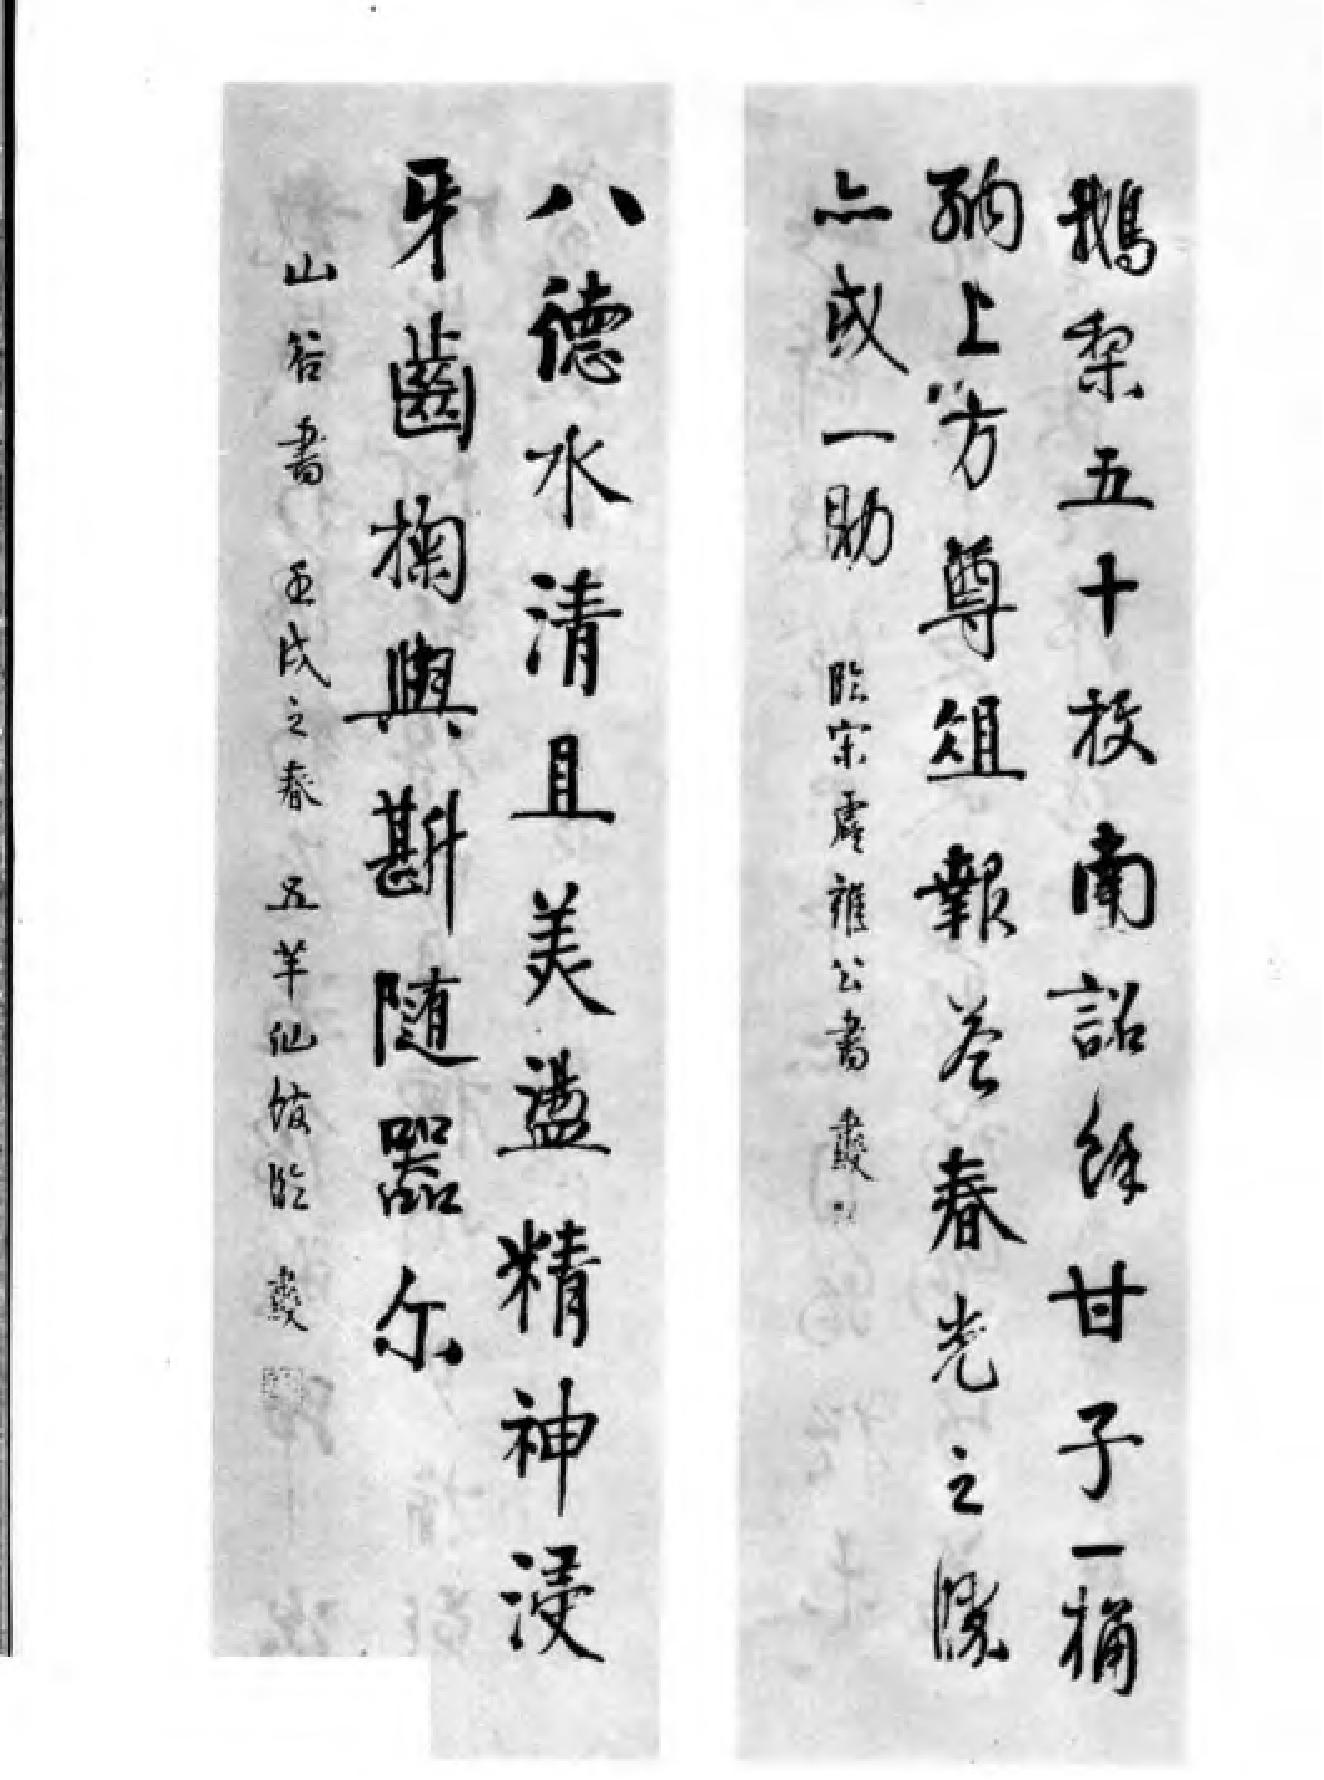 鵝梨五十枚南詔餘甘子一桶
納上方尊俎報答春光之際
亦或一助
臨宋虞雍公書 燮
八德水清且美盪精神浸
牙齒掬與斟随器尔
山谷書 壬戌之春 五羊仙館臨 燮